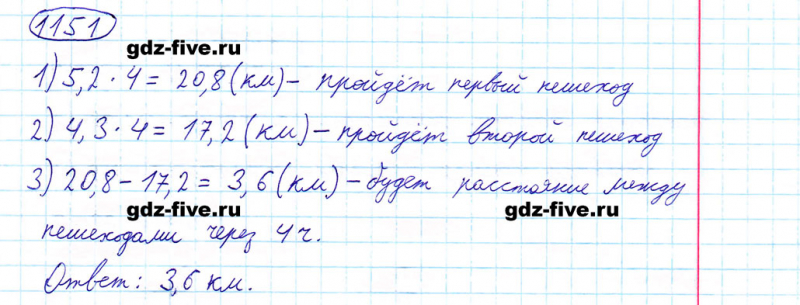 1151
gdz-five.ru
1) 5,2 · 4 = 20,8 (км) – пройдёт первый пешеход
2) 4,3 · 4 = 17,2 (км) – пройдёт второй пешеход
3) 20,8 – 17,2 = 3,6 (км) – будет расстояние между
gdz-five.ru gdz-five.ru
пешеходами через 4 ч.
Ответ: 3,6 км.